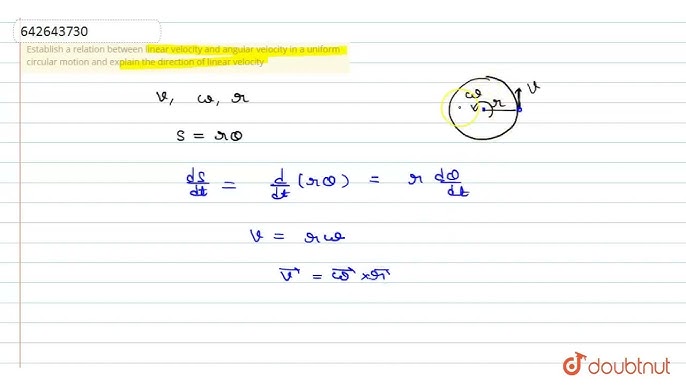 642643730
Establish a relation between linear velocity and angular velocity in a uniform
circular motion and explain the direction of linear velocity
v, ω, r
s = rθ
ds/dt = d/dt (rθ) = r dθ/dt
v = rω
v⃗ = ω⃗ × r⃗
ω
r
v
doubtnut